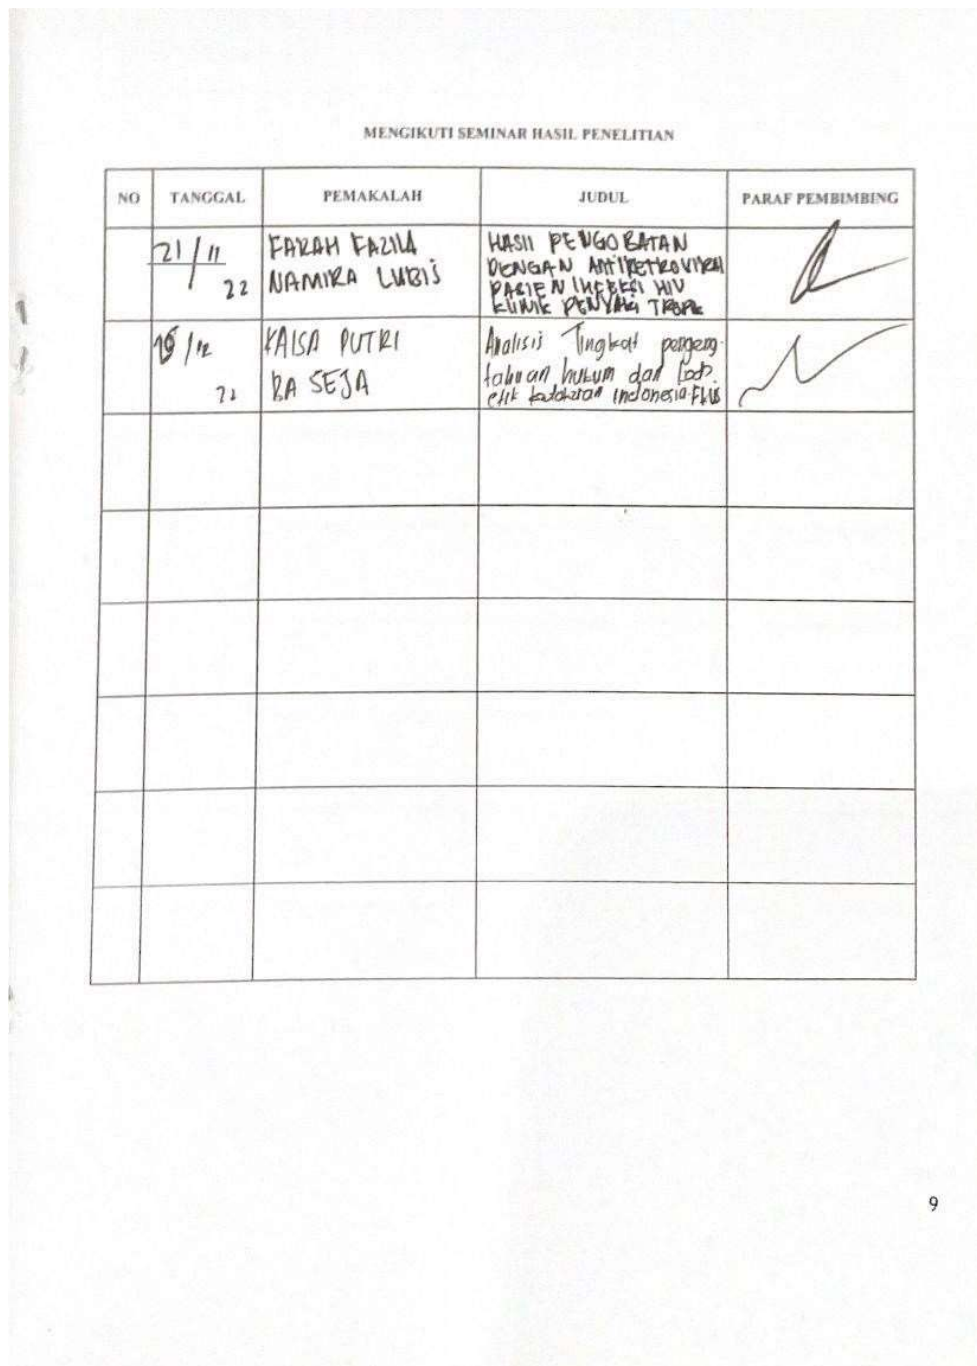 MENGIKUTI SEMINAR HASIL PENELITIAN
NO TANGGAL PEMAKALAH JUDUL PARAF PEMBIMBING
21/11
22
FARAH FAZILA
NAMIRA LUBIS
HASIL PENGOBATAN
DENGAN ANTIRETROVIRAL
PASIEN INFEKSI HIV
KLINIK PENYAKIT
/12
22
PUTRI
BA SEJA
Analisis Tingkat pengeng-
tahuan hukum dan
etik kedokteran indonesia
9